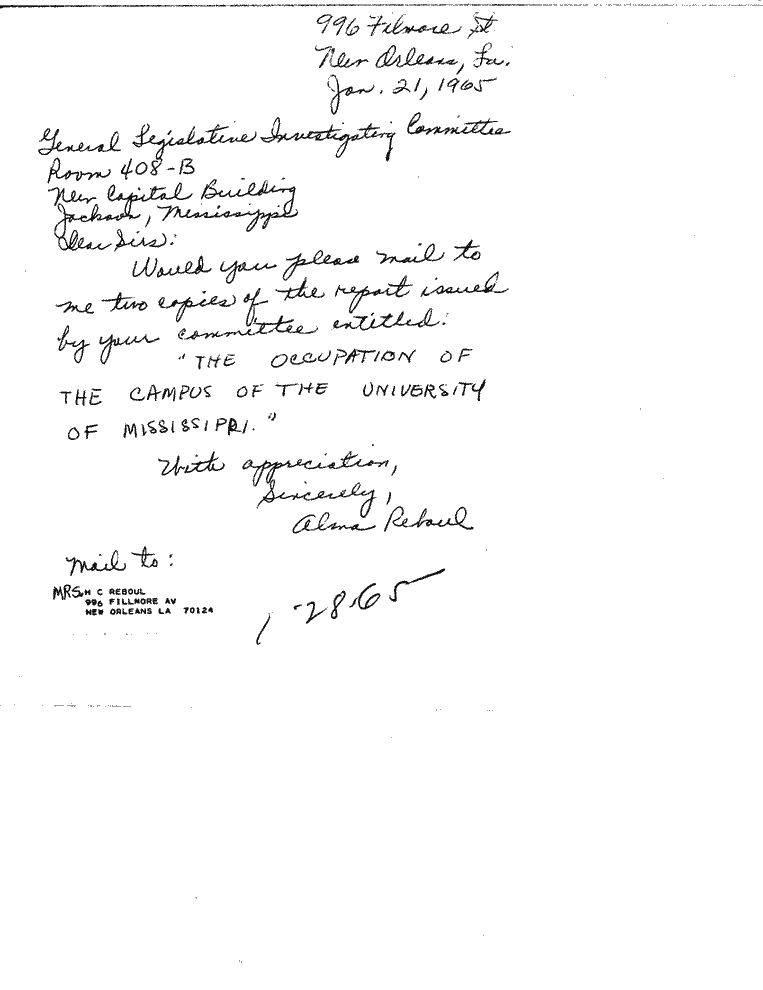 996 Filmore St
New Orleans, La.
Jan. 21, 1965
General Legislative Investigating Committee
Room 408-B
New Capital Building
Jackson, Mississippi
Dear Sirs:
Would you please mail to
me two copies of the report issued
by your committee entitled:
"THE OCCUPATION OF
THE CAMPUS OF THE UNIVERSITY
OF MISSISSIPPI."
With appreciation,
Sincerely,
Alma Reboul
Mail to:
MRS. H C REBOUL
996 FILLMORE AV
NEW ORLEANS LA 70124
1-28-65